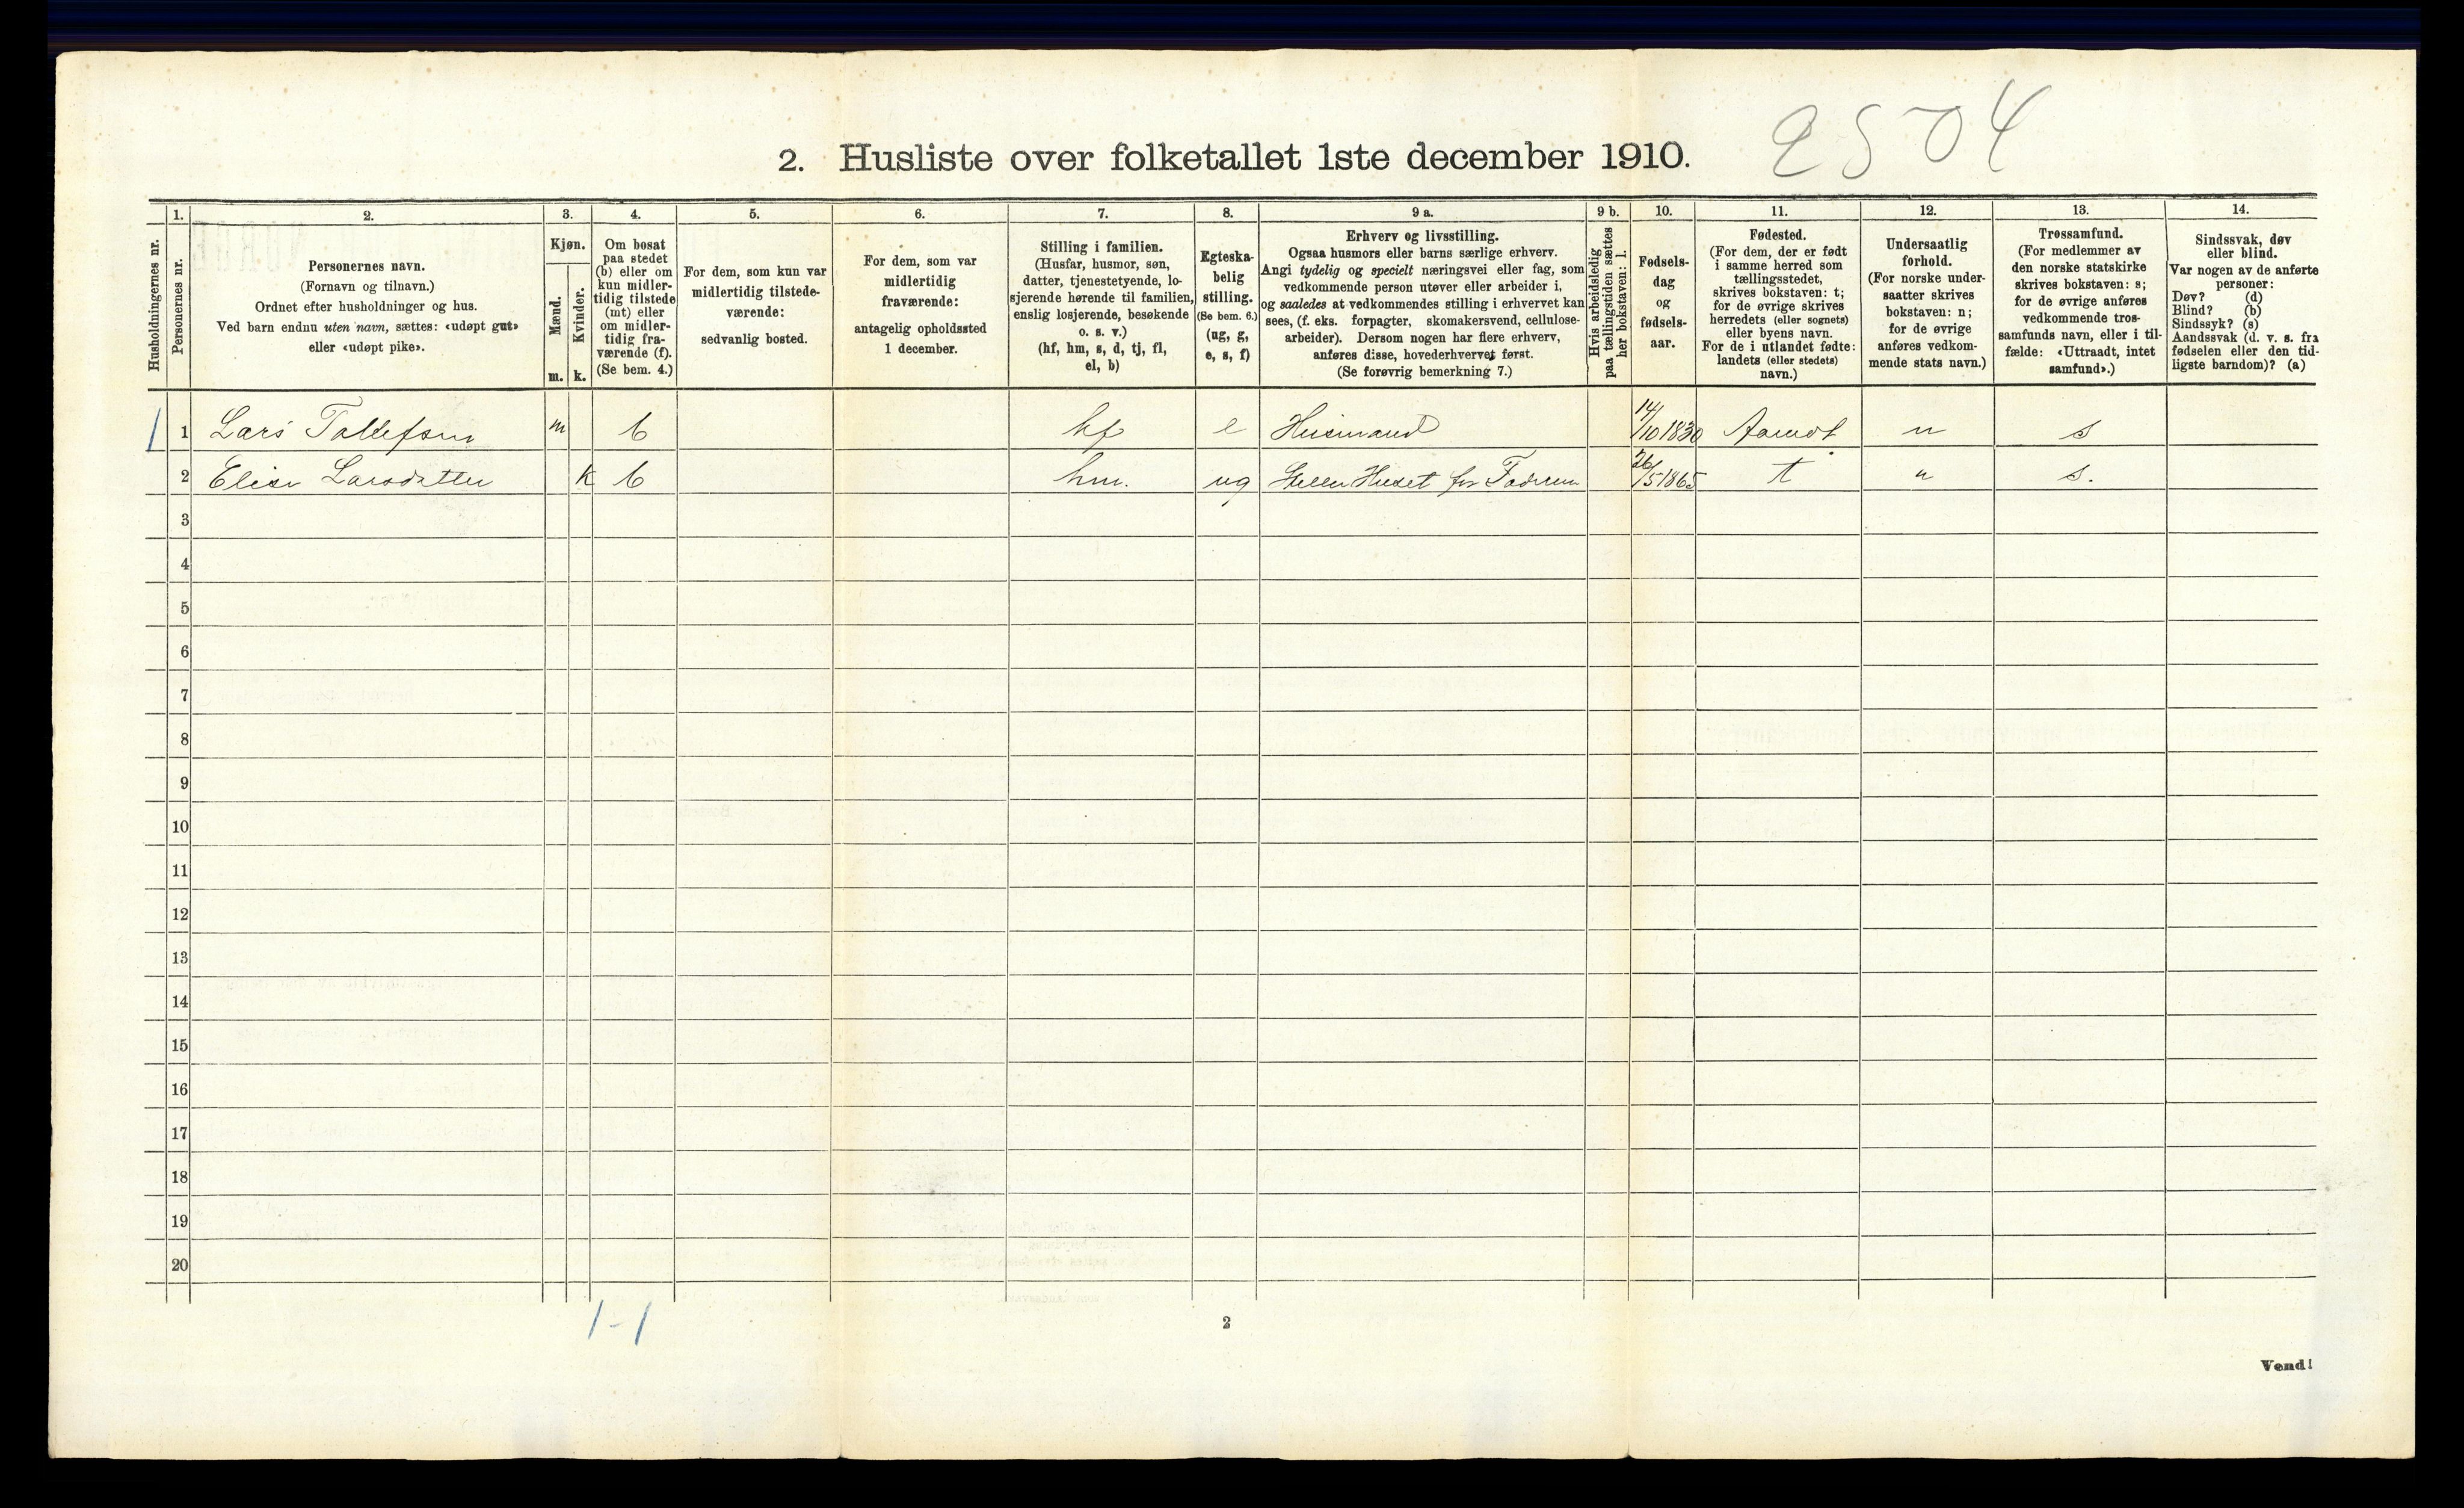 2504
2. Husliste over folketallet 1ste december 1910.
Husholdningernes nr.
1.
Personernes nr.
2.
Personernes navn.
(Fornavn og tilnavn.)
Ordnet efter husholdninger og hus.
Ved barn endnu uten navn, sættes: «udøpt gut»
eller «udøpt pike».
3.
Kjøn.
Mænd.
m.
Kvinder.
k.
4.
Om bosat
paa stedet
(b) eller om
kun midler-
tidig tilstede
(mt) eller
om midler-
tidig fra-
værende (f).
(Se bem. 4.)
5.
For dem, som kun var
midlertidig tilstede-
værende:
sedvanlig bosted.
6.
For dem, som var
midlertidig
fraværende:
antagelig opholdssted
1 december.
7.
Stilling i familien.
(Husfar, husmor, søn,
datter, tjenestetyende, lo-
sjerende hørende til familien,
enslig losjerende, besøkende
o. s. v.)
(hf, hm, s, d, tj, fl,
el, b)
8.
Egteska-
belig
stilling.
(Se bem. 6.)
(ug, g,
e, s, f)
9 a.
Erhverv og livsstilling.
Ogsaa husmors eller barns særlige erhverv.
Angi tydelig og specielt næringsvei eller fag, som
vedkommende person utøver eller arbeider i,
og saaledes at vedkommendes stilling i erhvervet kan
sees, (f. eks. forpagter, skomakersvend, cellulose-
arbeider). Dersom nogen har flere erhverv,
anføres disse, hovederhvervet først.
(Se forøvrig bemerkning 7.)
9 b.
Hvis arbeidsledig
paa tællingstiden sættes
her bokstaven: l.
10.
Fødsels-
dag
og
fødsels-
aar.
11.
Fødested.
(For dem, der er født
i samme herred som
tællingsstedet,
skrives bokstaven: t;
for de øvrige skrives
herredets (eller sognets)
eller byens navn.
For de i utlandet fødte:
landets (eller stedets)
navn.)
12.
Undersaatlig
forhold.
(For norske under-
saatter skrives
bokstaven: n;
for de øvrige
anføres vedkom-
mende stats navn.)
13.
Trossamfund.
(For medlemmer av
den norske statskirke
skrives bokstaven: s;
for de øvrige anføres
vedkommende tros-
samfunds navn, eller i til-
fælde: «Uttraadt, intet
samfund».)
14.
Sindssvak, døv
eller blind.
Var nogen av de anførte
personer:
Døv? (d)
Blind? (b)
Sindssyk? (s)
Aandssvak (d. v. s. fra
fødselen eller den tid-
ligste barndom)? (a)
1 1 Lars Tollefsen m b hf e Husmand 14/10 1830 Aamot n s
2 Elise Larsdatter k b hm. ug Steller Huset for Faderen 26/5 1865 t n s.
3
4
5
6
7
8
9
10
11
12
13
14
15
16
17
18
19
20
1-1
2
Vend!